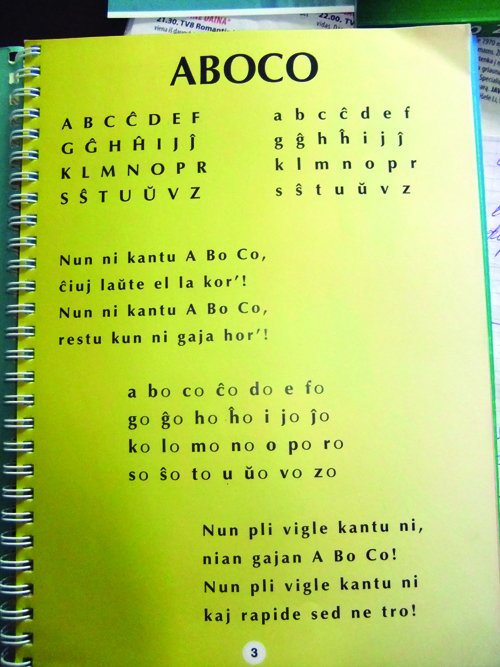 21.30, TV8 Romantič
22.00, TV
ABOCO
A B C Ĉ D E F
G Ĝ H Ĥ I J Ĵ
K L M N O P R
S Ŝ T U Ŭ V Z
a b c ĉ d e f
g ĝ h ĥ i j ĵ
k l m n o p r
s ŝ t u ŭ v z
Nun ni kantu A Bo Co,
ĉiuj laŭte el la kor'!
Nun ni kantu A Bo Co,
restu kun ni gaja hor'!
a bo co ĉo do e fo
go ĝo ho ĥo i jo ĵo
ko lo mo no o po ro
so ŝo to u ŭo vo zo
Nun pli vigle kantu ni,
nian gajan A Bo Co!
Nun pli vigle kantu ni
kaj rapide sed ne tro!
3